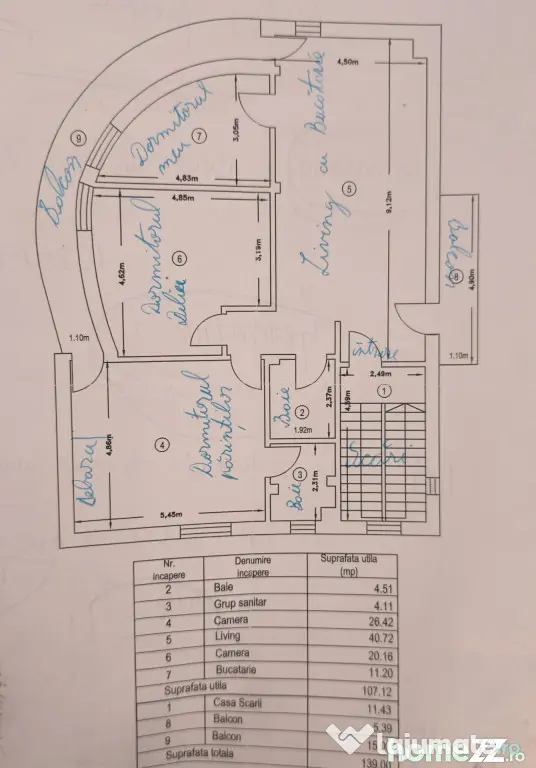 4,50m
Dormitorul
meu
7
3,05m
4,83m
9
Balcon
4,85m
Living cu Bucătărie
5
9,12m
4,62m
Dormitorul
Delia
6
3,19m
balcon
8
4,90m
1.10m
1.10m
intrare
2,49m
1
4,59m
Scări
Baie
2
2,37m
1.92m
Debara
4,86m
4
Dormitorul
părinților
5,45m
Baie
3
2,31m
Nr. incapere Denumire incapere Suprafata utila (mp)
2 Baie 4.51
3 Grup sanitar 4.11
4 Camera 26.42
5 Living 40.72
6 Camera 20.16
7 Bucatarie 11.20
Suprafata utila 107.12
1 Casa Scarii 11.43
8 Balcon 5.39
9 Balcon
Suprafata totala 139.00
homezz.ro